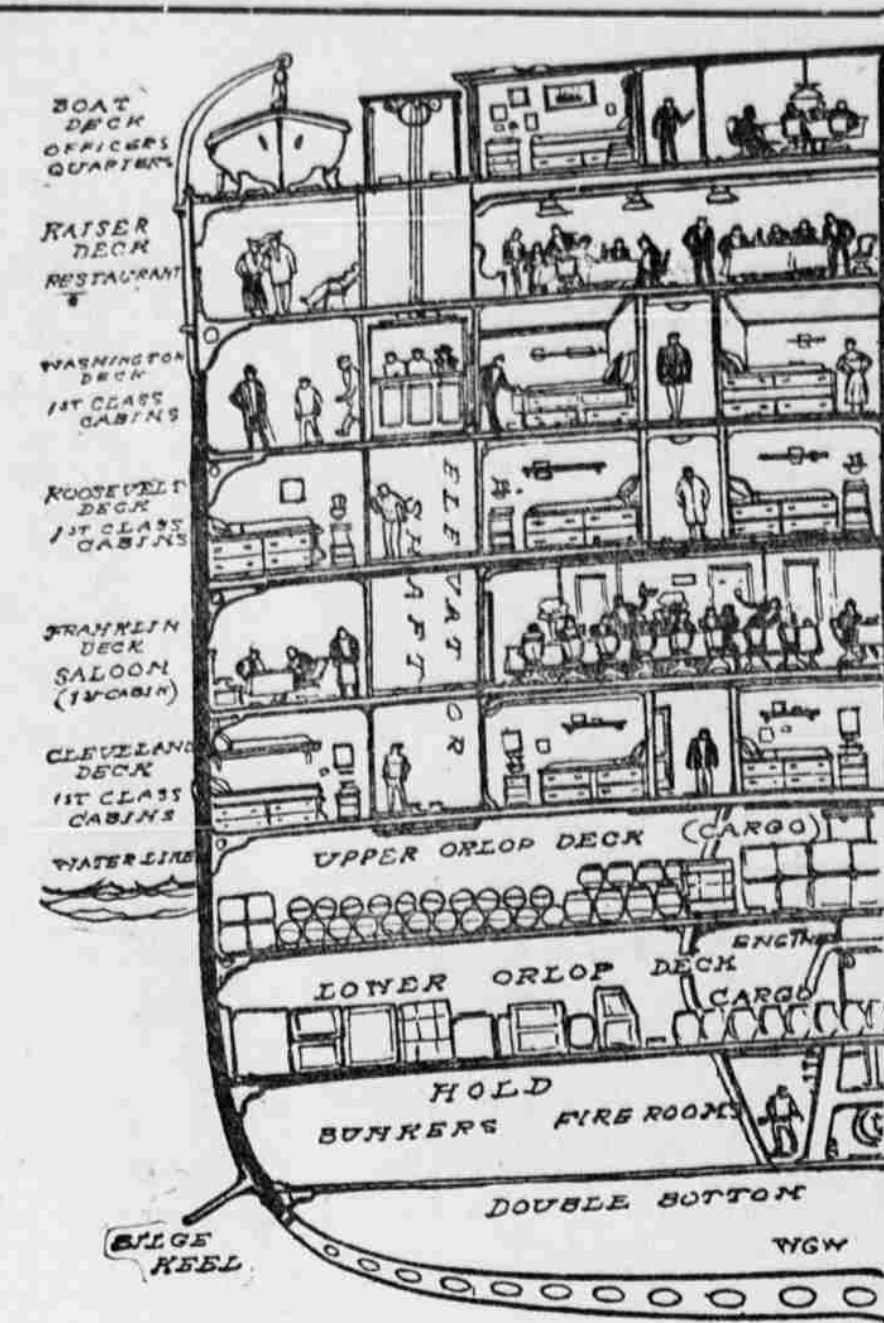 BOAT
DECK
OFFICERS
QUARTERS
KAISER
DECK
RESTAURANT
WASHINGTON
DECK
1ST CLASS
CABINS
ROOSEVELT
DECK
1ST CLASS
CABINS
ELEVATOR
SHAFT
FRANKLIN
DECK
SALOON
(1ST CABIN)
CLEVELAND
DECK
1ST CLASS
CABINS
WATER LINE
UPPER ORLOP DECK (CARGO)
ENGINE
LOWER ORLOP DECK
CARGO
HOLD
BUNKERS FIRE ROOMS
DOUBLE BOTTOM
BILGE
KEEL
WGW